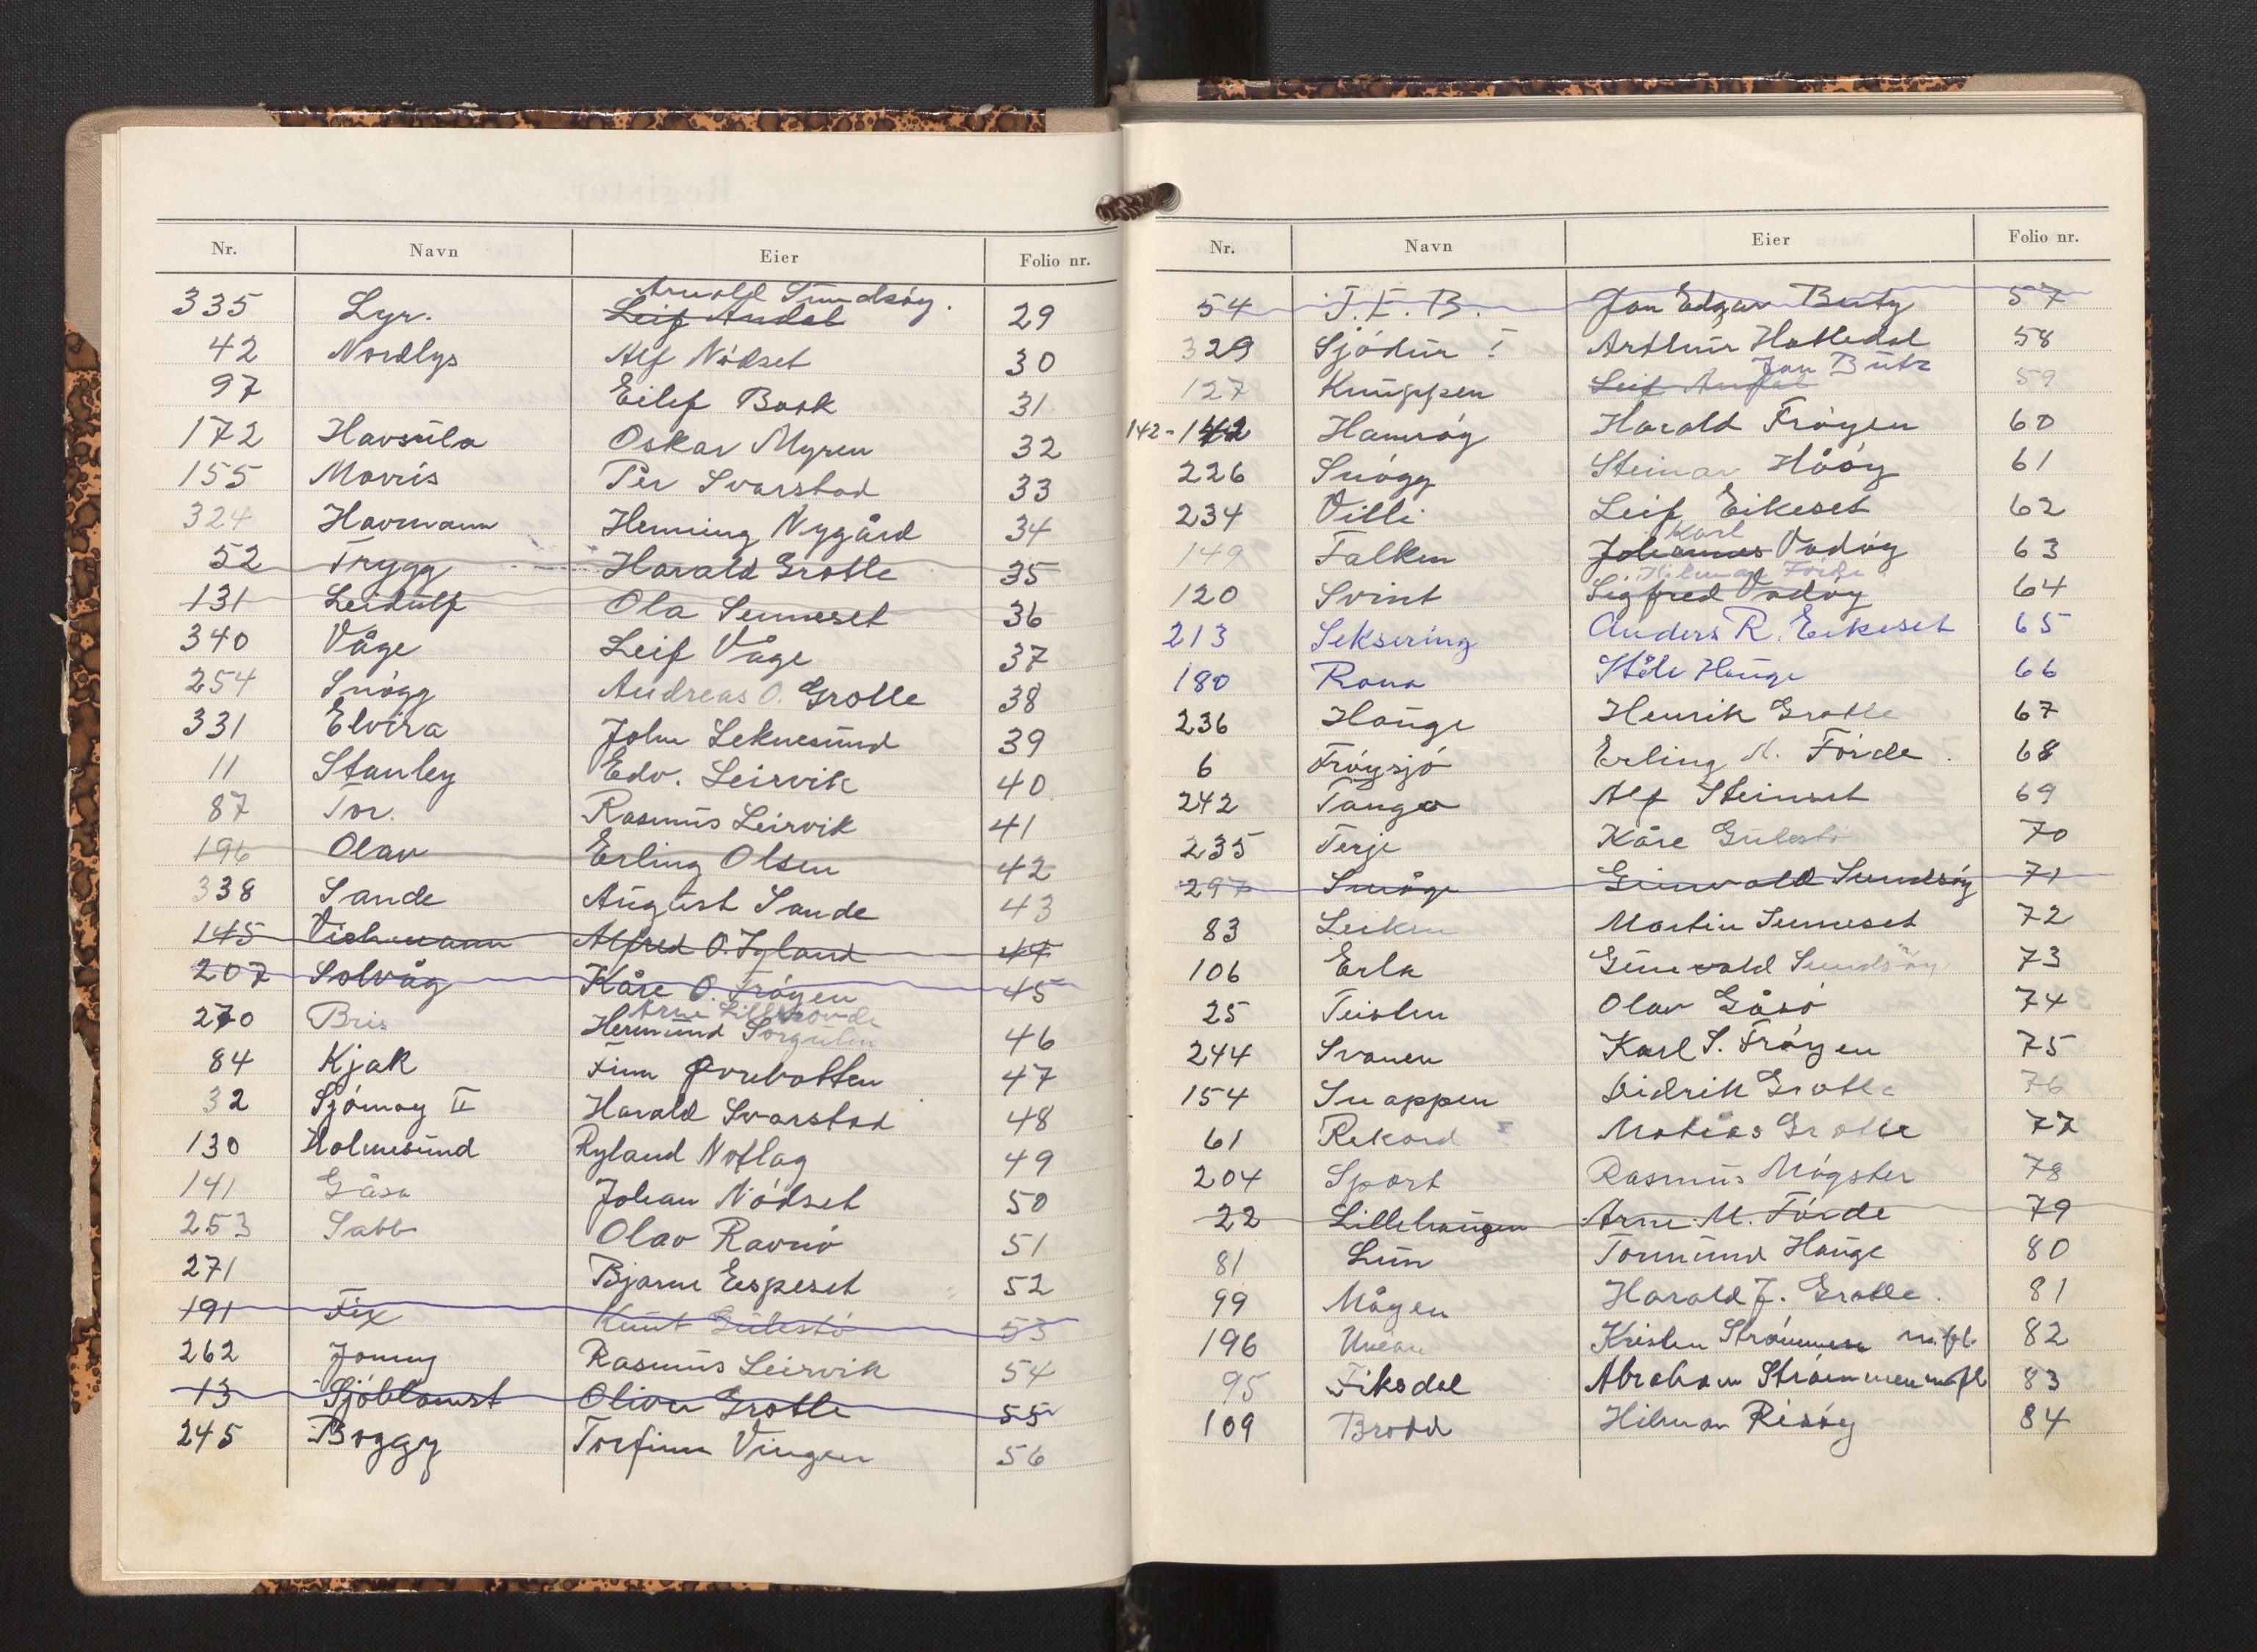 Nr. Navn Eier Folio nr.
Arnold Sundsöy.
335 Lyr. Leif Andal 29
42 Nordlys Alf Nödset 30
97 Eilef Bask 31
172 Havsüla Oskar Myren 32
155 Movris Per Svarstad 33
324 Havmann Henning Nygård 34
52 Trygg Harald Grotle 35
131 Leidulf Ola Senneset 36
340 Våge Leif Våge 37
254 Snögg Andreas O. Grotle 38
331 Elvira John Leknesund 39
11 Stanley Edv. Leirvik 40
87 Tor. Rasmus Leirvik 41
196 Olav Erling Olsen 42
338 Sande August Sande 43
145 Alfred O. Tyland 44
207 Solvåg Kåre O. Fröyen 45
Arne
270 Bris Hermund Sorgulen 46
84 Kjak Finn Övrebotten 47
32 Sjömoy II Harald Svarstad 48
130 Holmesund Ryland Notlag 49
141 Gåsa Johan Nödset 50
253 Sabb Olav Ravnö 51
271 Bjarne Espeset 52
191 Fix Knut Gulestö 53
262 Jonny Rasmus Leirvik 54
13 Sjöblomst Oliver Grotle 55
245 Boggy Torfinn Vingen 56
Nr. Navn Eier Folio nr.
54 J. E. B. Jan Edgar Butz 57
329 Sjödur I Arthur Hatledal 58
Jan Butz
127 Knuppen Leif Andal 59
142-142 Hamröy Harald Fröyen 60
226 Snögg Steinar Håöy 61
234 Villi Leif Eikeset 62
Karl
149 Falken Johannes Vadöy 63
Hilmar Förde
120 Svint Sigfred Vadöy 64
213 Seksering Anders R. Eikeset 65
180 Rana Ståle Hauge 66
236 Hauge Henrik Grotle 67
6 Fröysjö Erling M. Förde. 68
242 Tango Alf Steinset 69
235 Terje Kåre Gulestö 70
297 Snöge Gunvald Sundsöy 71
83 Leiken Martin Senneset 72
106 Erla Gunvald Sundsöy 73
25 Teisten Olav Gåsö 74
244 Svanen Karl S. Fröyen 75
154 Snappen Didrik Grotle 76
61 Rekord Mathias Grotle 77
204 Sport Rasmus Mögster 78
22 Lillehaugen Arne M. Förde 79
81 Lun Tormund Hauge 80
99 Mågen Harald J. Grotle. 81
196 Union Kristen Strömmen m.fl. 82
95 Fiksdal Abraham Strömmen m.fl 83
109 Brodd Hilmar Risöy 84